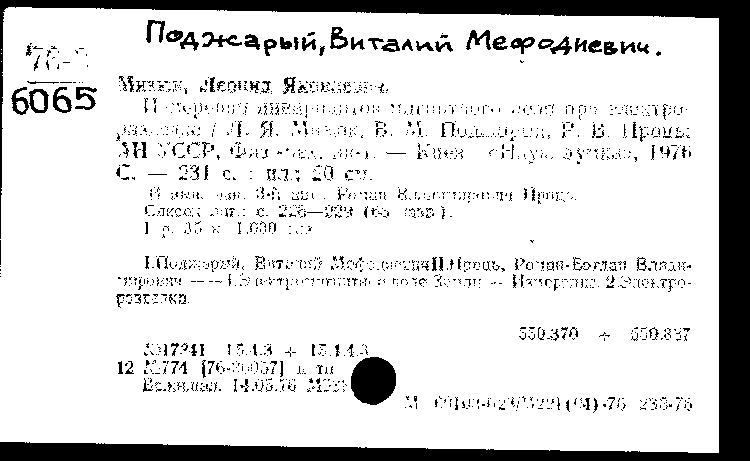 Поджарый, Виталий Мефодиевич.
76-
6065
Мизюк, Леонид Яковлевич.
Измерение инвариантов магнитного поля при электро-
разведке / Л. Я. Мизюк, В. М. Поджарый, Р. В. Проць;
АН УССР, Физ.-мех. ин-т. — Киев : Наук. думка, 1976
С. — 231 с. : ил.; 20 см.
В вып. дан. 3-й авт. Роман Владимирович Проць.
Список лит.: с. 226—229 (65 назв.).
1 р. 35 к. 1.000 экз.
I.Поджарый, Виталий Мефодиевич II.Проць, Роман-Богдан Влади-
мирович — — 1.Электромагнитное поле Земли — Измерение. 2.Электро-
разведка.
550.370 + 550.837
№17241 15.4.3 + 15.1.4.3
12 №774 [76-] п тп
Вс.кн.пал. 14.05.76
М (04)-76 235-76